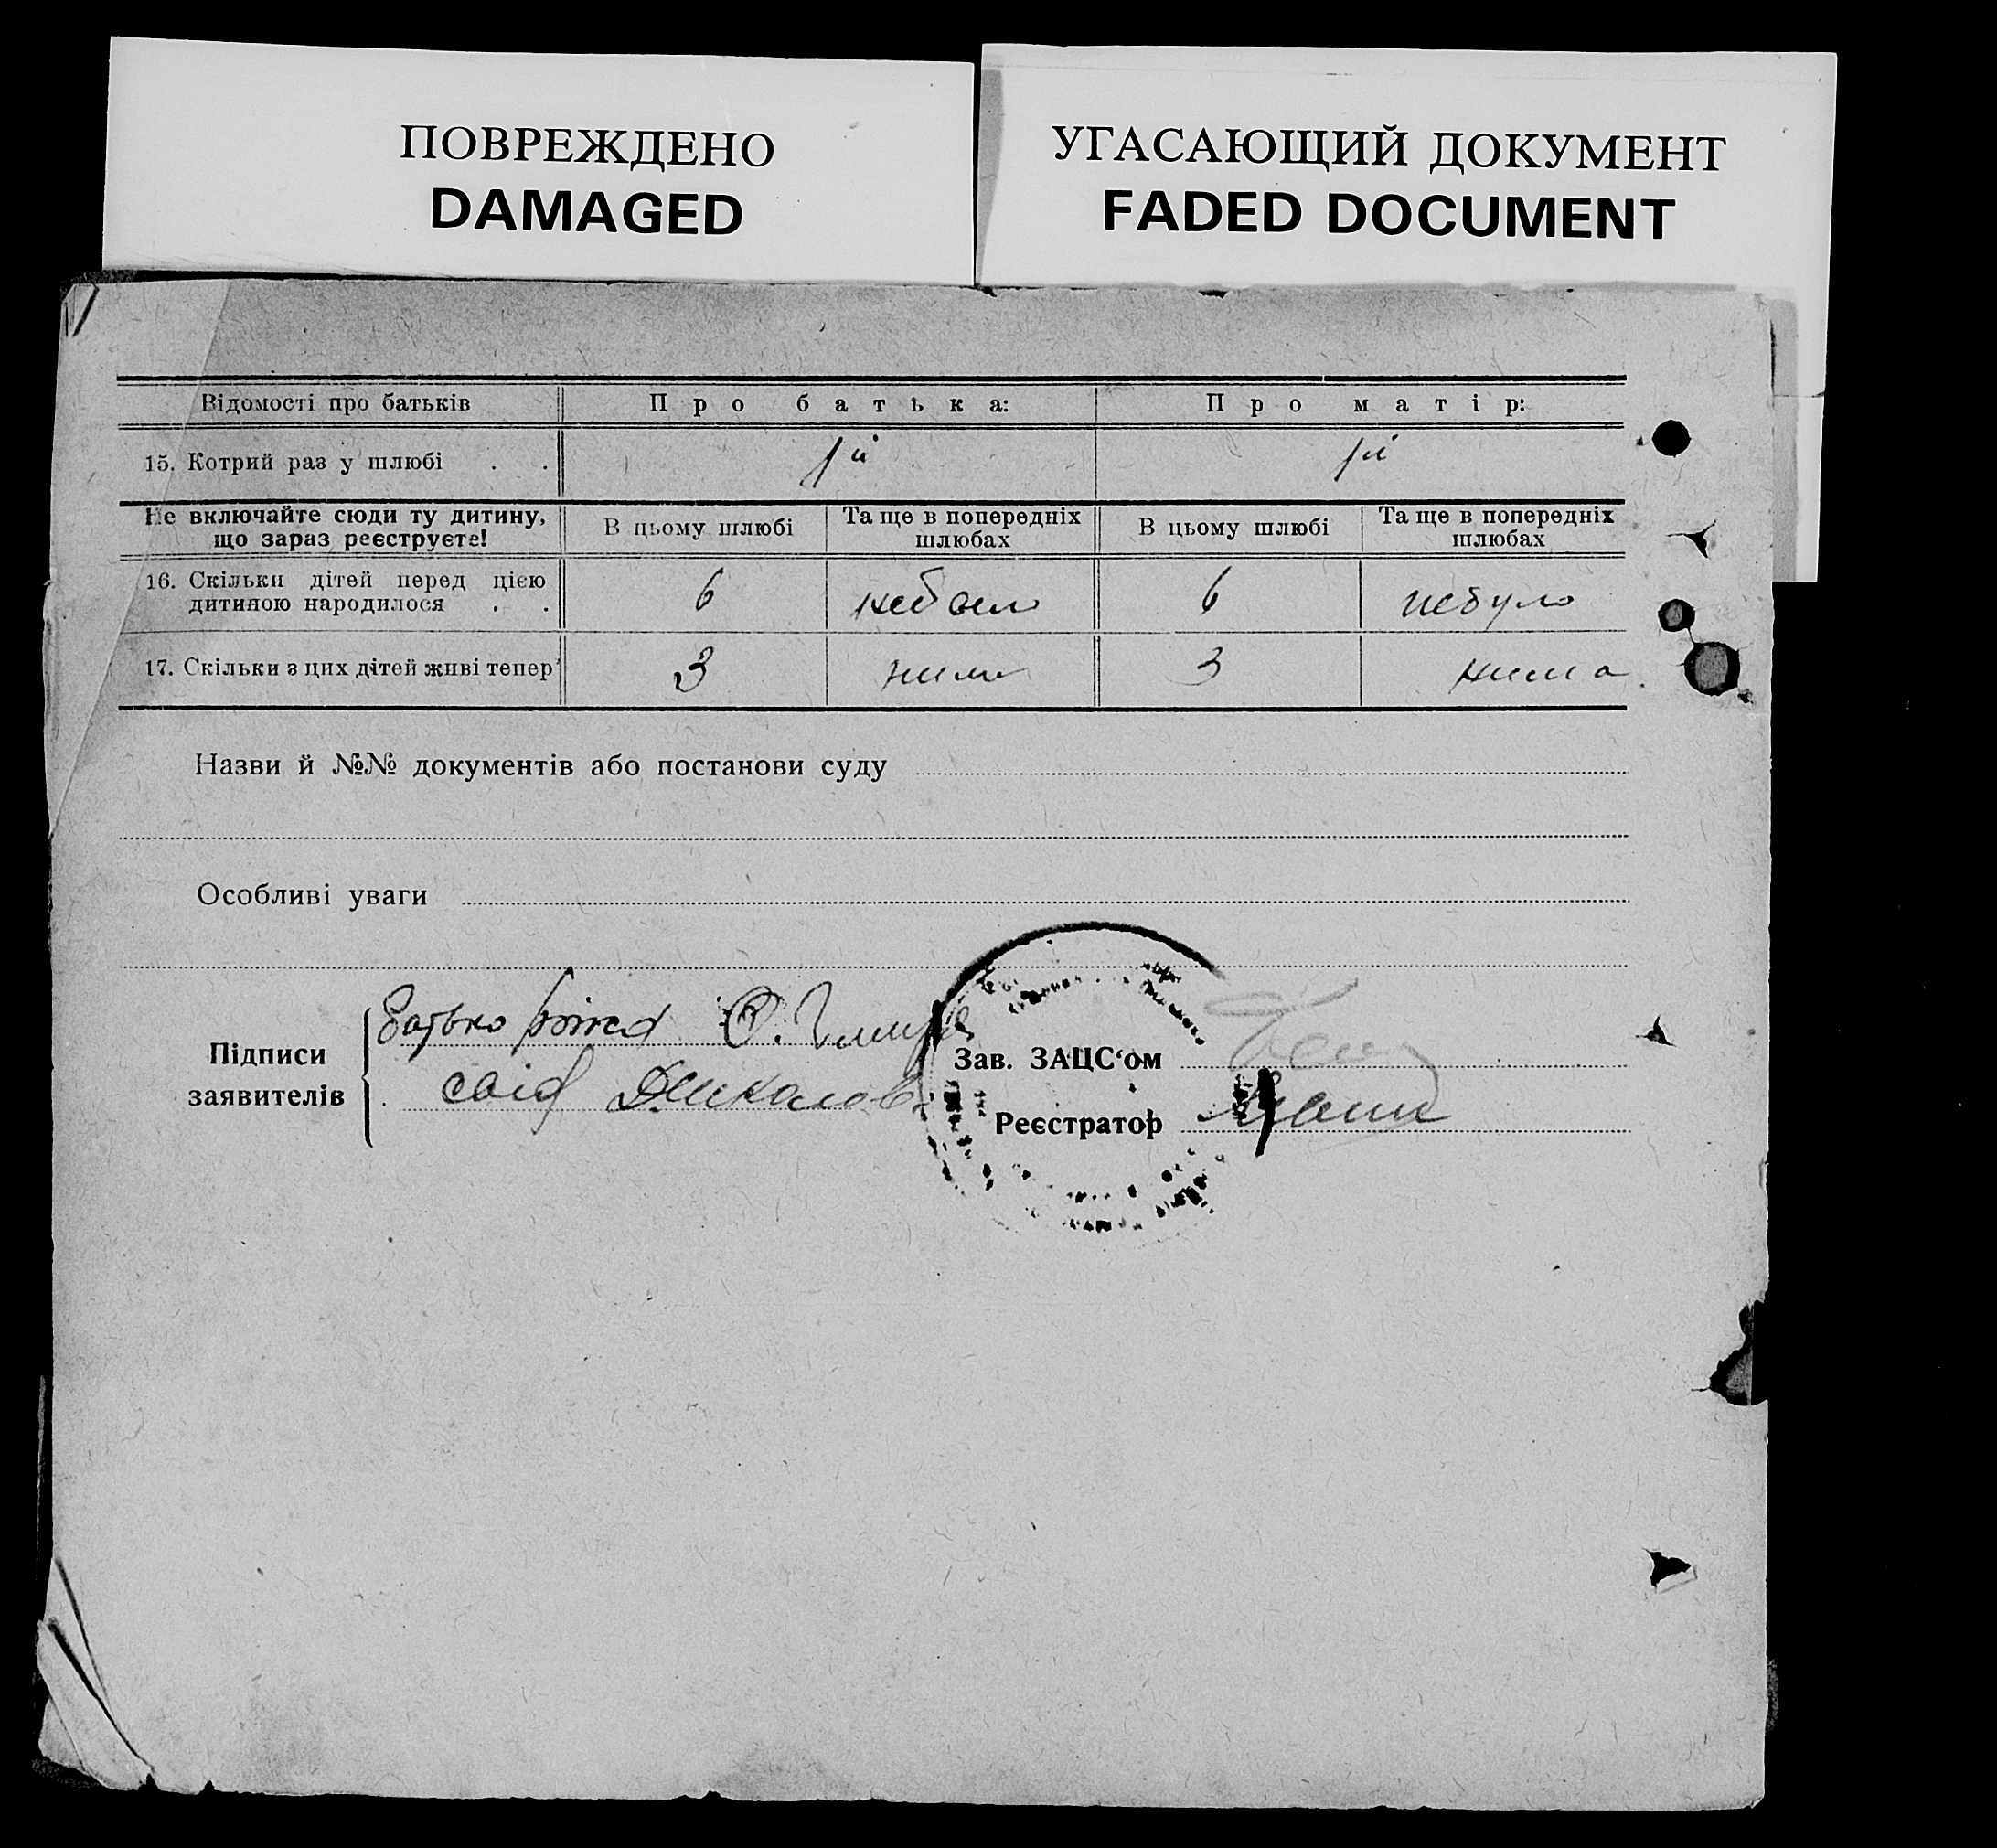 ПОВРЕЖДЕНО
DAMAGED
УГАСАЮЩИЙ ДОКУМЕНТ
FADED DOCUMENT
Відомості про батьків Про батька: Про матір:
15. Котрий раз у шлюбі . . 1й 1й
Не включайте сюди ту дитину, що зараз реєструєте! В цьому шлюбі Та ще в попередніх шлюбах В цьому шлюбі Та ще в попередніх шлюбах
16. Скільки дітей перед цією
дитиною народилося . . 6 6 небуло
17. Скільки з цих дітей живі тепер 3 3 нима
Назви й №№ документів або постанови суду
Особливі уваги
Підписи
заявителів
Батько
Зав. ЗАЦС'ом
Реєстратор